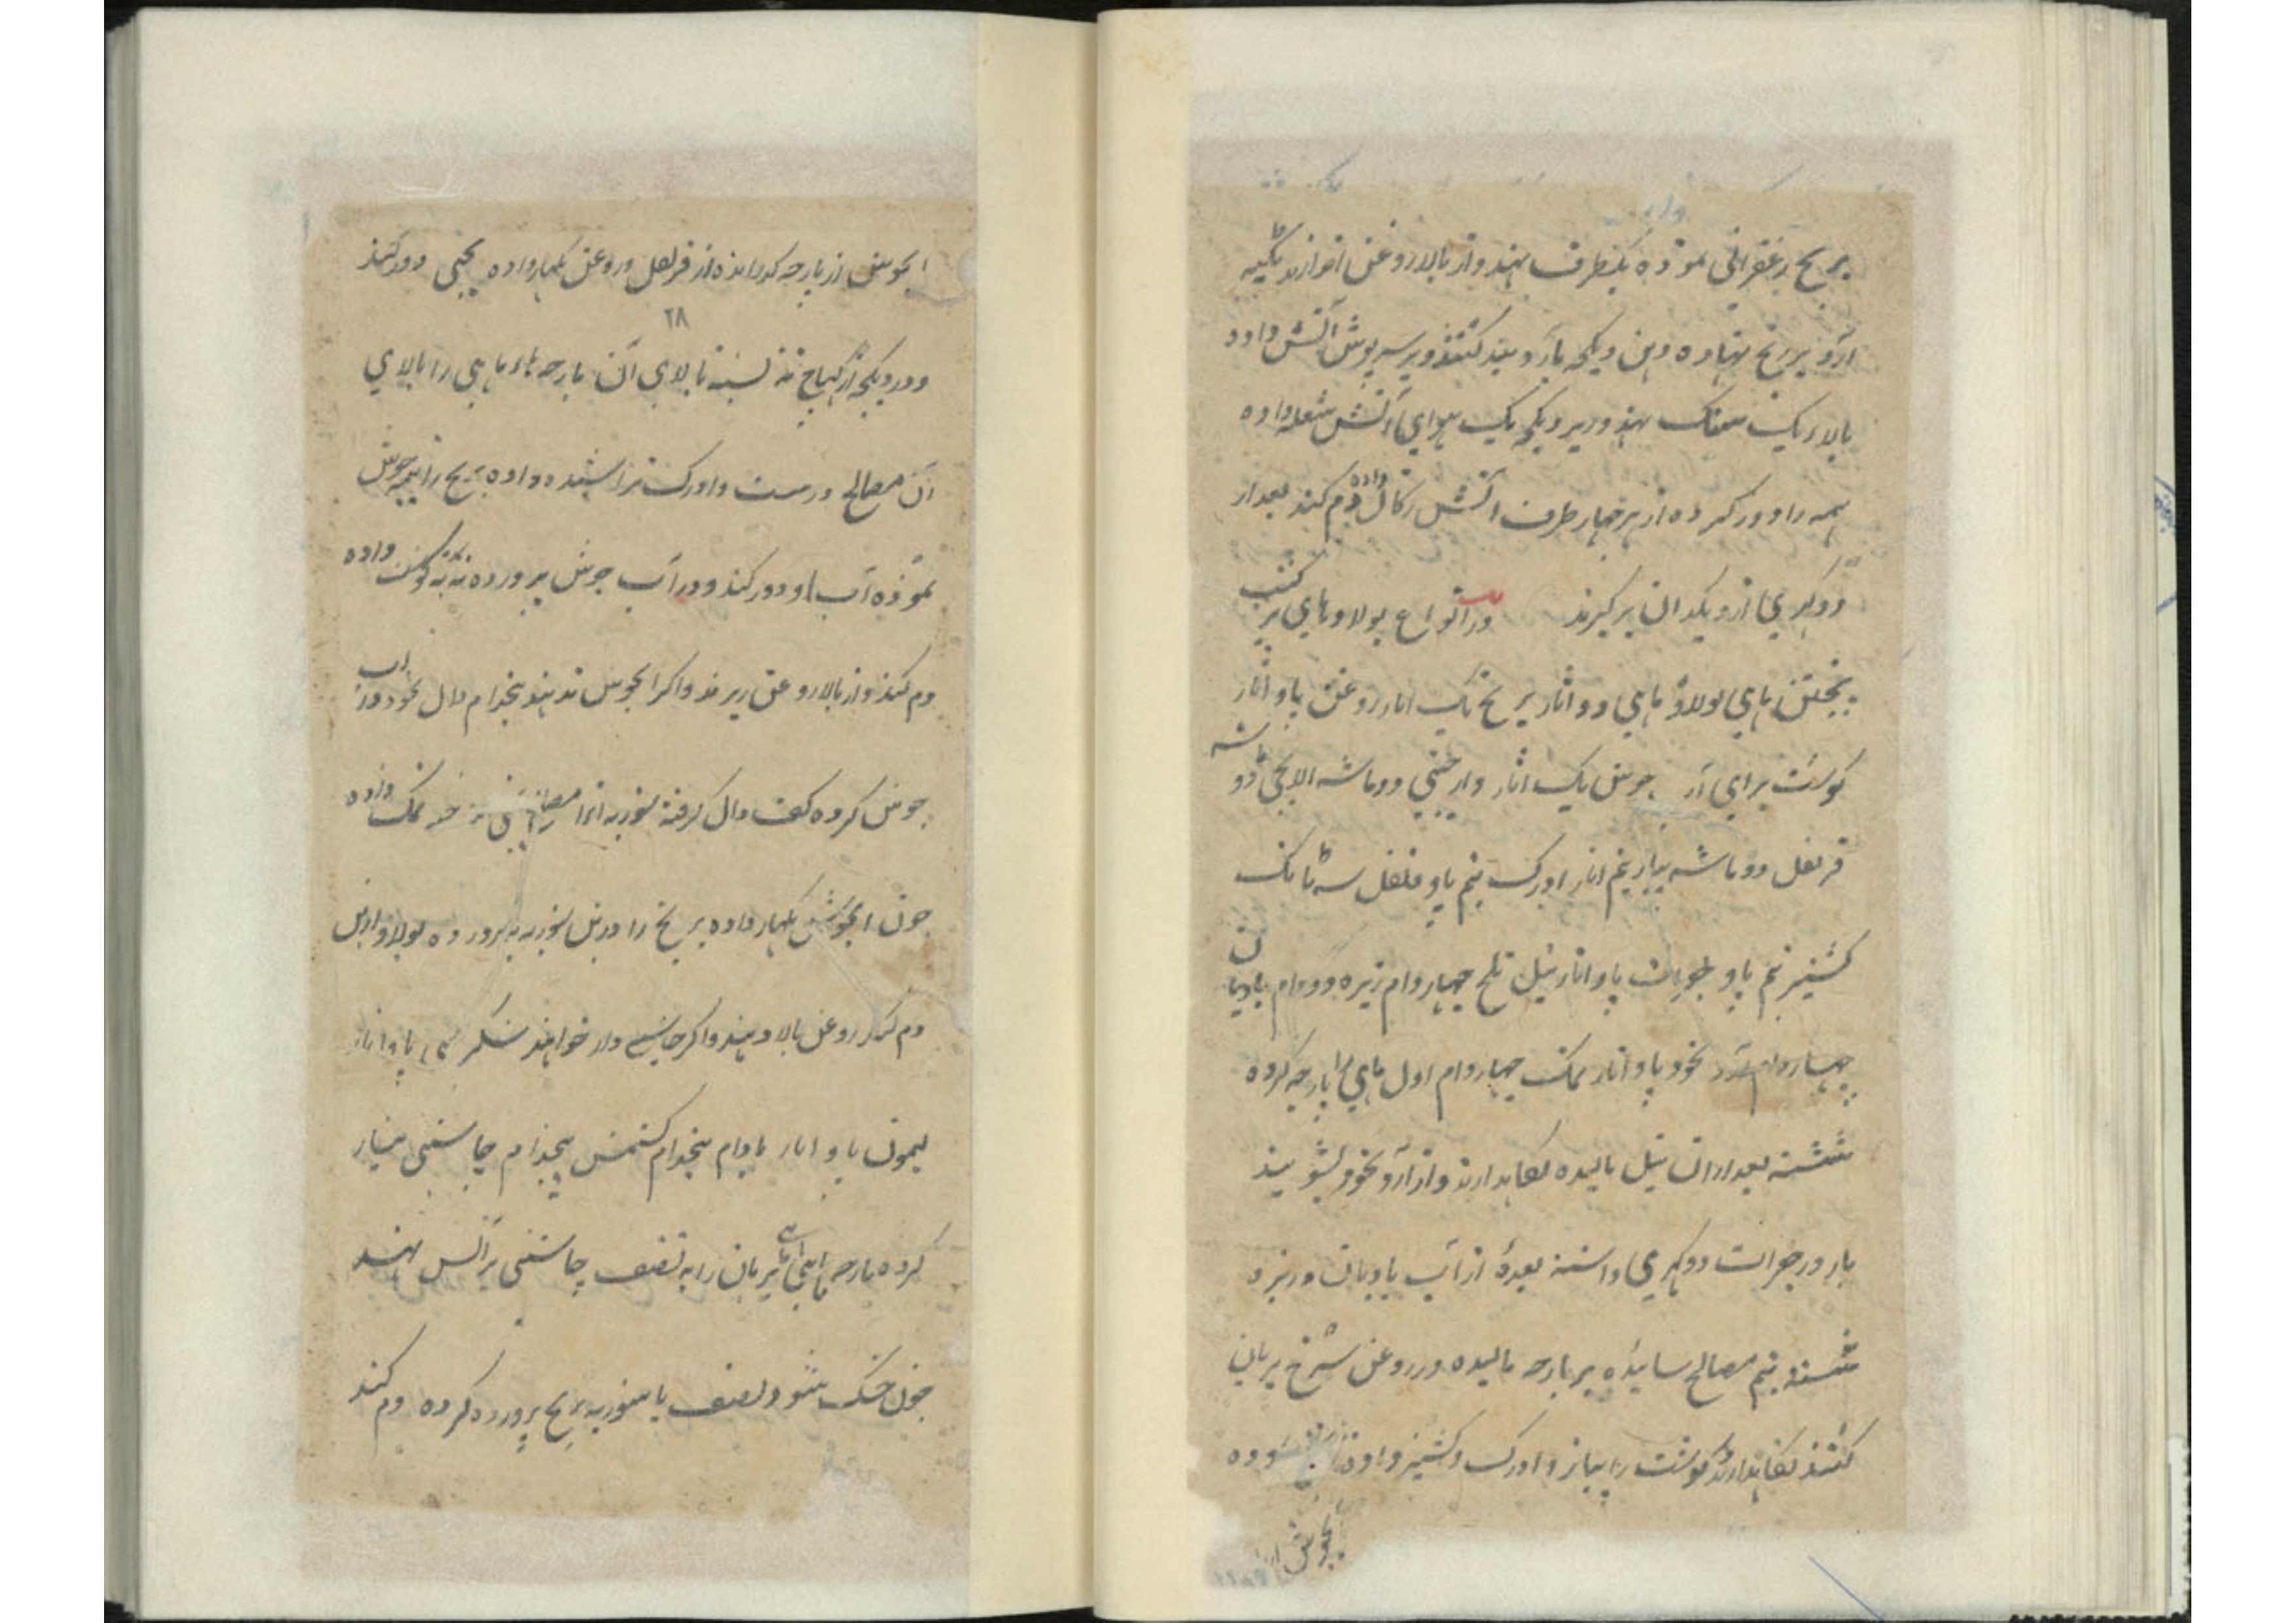 برنج زعفرانی نموده یکطرف نهند و از بالا روغن اندازند تکیه
آرد بر برنج نهاده دهن دیکچه بآرد بند کنند و بر سرپوش آتش داده
بالاء یک نهند و زیر دیکچه یک آتش شعله داده
همه را دور کرده از هر چهار طرف آتش زکال داده دم کنند بعد از
دو کهری از دیکدان بر کیرند در انواع پولاوهای
پختن ماهی پولاو ماهی دو اثار برنج یک اثار روغن پاو اثار
کوشت برای آب جوش یک اثار دارچینی دو ماشه الایچی دو ماشه
قرنفل دو ماشه پیاز نیم اثار ادرک نیم پاو فلفل سه تانک
کشنیز نیم پاو جغرات پاو اثار تیل تلخ چهار دام زیره دو دام بادیان
چهار دام آرد نخود پاو اثار نمک چهار دام اول ماهی را پارچه کرده
شسته بعد از ان تیل مالیده نکاهدارند و از آرد نخود بشویند
بار در جغرات دو کهری داشته بعده از آب بادیان و زیره
شسته نیم مصالح سائیده بر پارچه مالیده در روغن سرخ بریان
کنند نکاهدارند و کوشت را پیاز و ادرک و کشنیز داده
آبجوش
آبجوش از پارچه کذرانیده از قرنفل و روغن بکهار داده یخنی دور کنند
۲۸
و در دیکچه از ته بسته بالای آن پارچه هاء ماهی را بالای
آن مصالح درست و ادرک تراشیده داده برنج را نیم جوش
نموده آب او دور کنند و در آب جوش پرورده ته به کوشت داده
دم کنند و از بالا روغن ریزند و اکر آبجوش ندهند پنجدام دال نخود در آب
جوش کرده کف دال کرفته شوربه آنرا نمک داده
چون آبجوش بکهار داده برنج را درین شوربه پرورده پولاو ازین
دم کرده روغن بالا دهند و اکر چاشنی دار خواهند شکر پاو اثار
لیمون پاو اثار بادام پنجدام کشمش پنجدام چاشنی طیار
کرده پارچه ماهی هاء بریان را به نصف چاشنی بر آتش نهند
چون خشک شود نصف با شوربه برنج پرورده کرده دم کنند